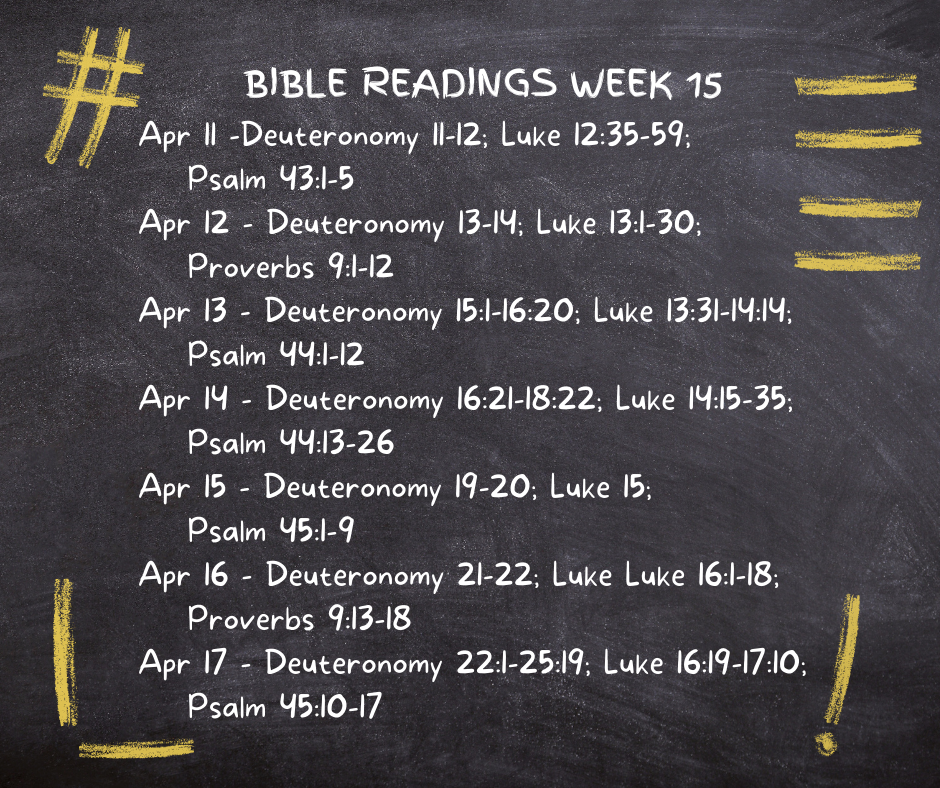 BIBLE READINGS WEEK 15
Apr 11 -Deuteronomy 11-12; Luke 12:35-59;
Psalm 43:1-5
Apr 12 - Deuteronomy 13-14; Luke 13:1-30;
Proverbs 9:1-12
Apr 13 - Deuteronomy 15:1-16:20; Luke 13:31-14:14;
Psalm 44:1-12
Apr 14 - Deuteronomy 16:21-18:22; Luke 14:15-35;
Psalm 44:13-26
Apr 15 - Deuteronomy 19-20; Luke 15;
Psalm 45:1-9
Apr 16 - Deuteronomy 21-22; Luke Luke 16:1-18;
Proverbs 9:13-18
Apr 17 - Deuteronomy 22:1-25:19; Luke 16:19-17:10;
Psalm 45:10-17